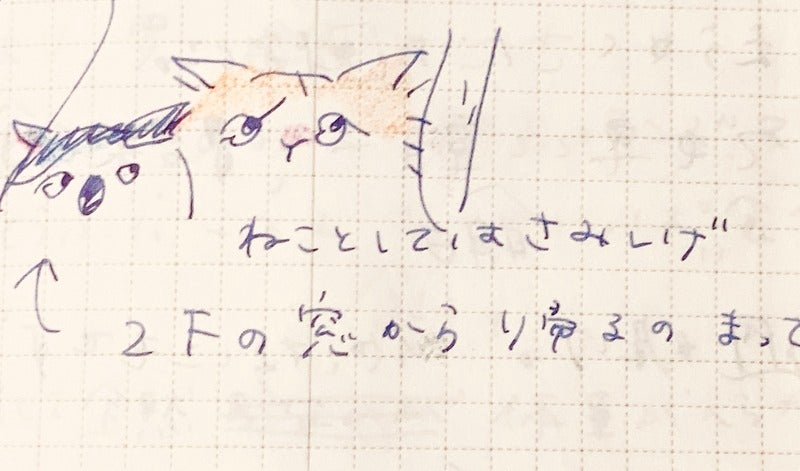 ねことしてはさみし
2Fの窓から帰るのまって